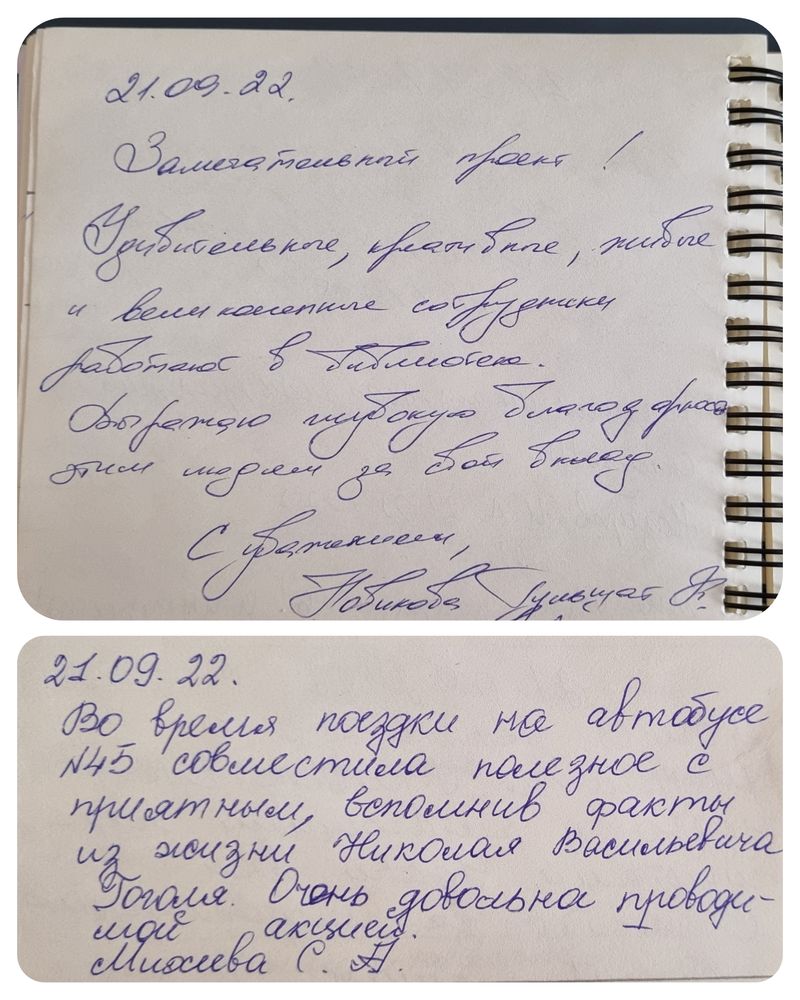 21.09.22.
Замечательный проект!
Удивительные, креативные, живые
и великолепные сотрудники
работают в библиотеке.
Выражаю глубокую благодарность
этим людям за свой вклад.
С уважением,
Новикова Гульшат Я.
21.09.22.
Во время поездки на автобусе
N45 совместила полезное с
приятным, вспомнив факты
из жизни Николая Васильевича
Гоголя. Очень довольна проводи-
мой акцией.
Михеева С. А.